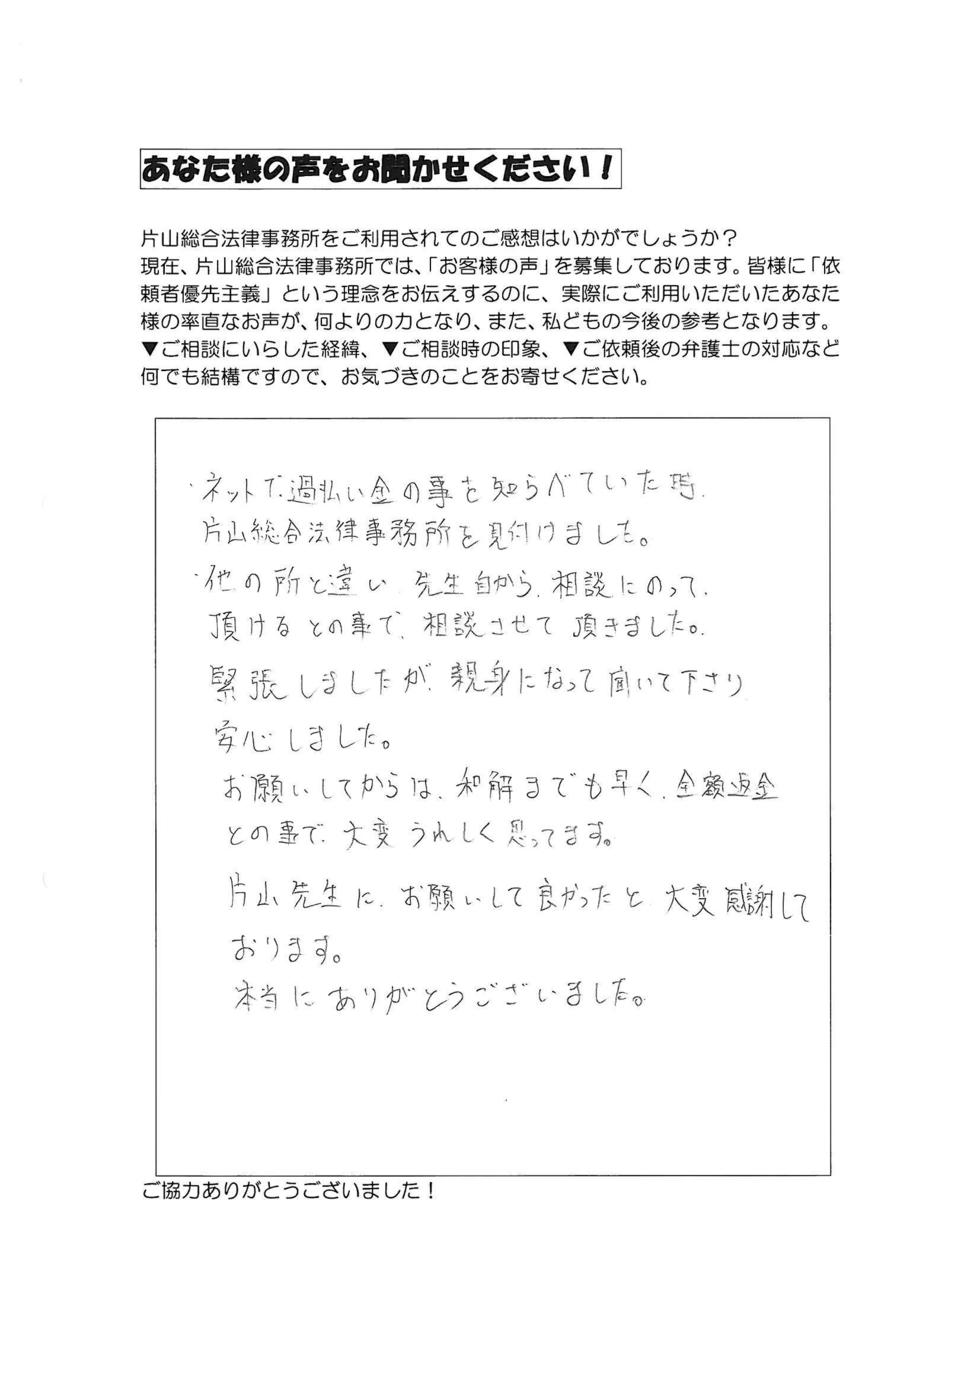 あなた様の声をお聞かせください！
片山総合法律事務所をご利用されてのご感想はいかがでしょうか？
現在、片山総合法律事務所では、「お客様の声」を募集しております。皆様に「依
頼者優先主義」という理念をお伝えするのに、実際にご利用いただいたあなた
様の率直なお声が、何よりの力となり、また、私どもの今後の参考となります。
▼ご相談にいらした経緯、▼ご相談時の印象、▼ご依頼後の弁護士の対応など
何でも結構ですので、お気づきのことをお寄せください。
・ネットで、過払い金の事を知らべていた時、
片山総合法律事務所を見付けました。
・他の所と違い、先生自から、相談にのって、
頂けるとの事で、相談させて頂きました。
緊張しましたが、親身になって聞いて下さり
安心しました。
お願いしてからは、和解までも早く、全額返金
との事で、大変うれしく思ってます。
片山先生に、お願いして良かったと、大変感謝して
おります。
本当にありがとうございました。
ご協力ありがとうございました！